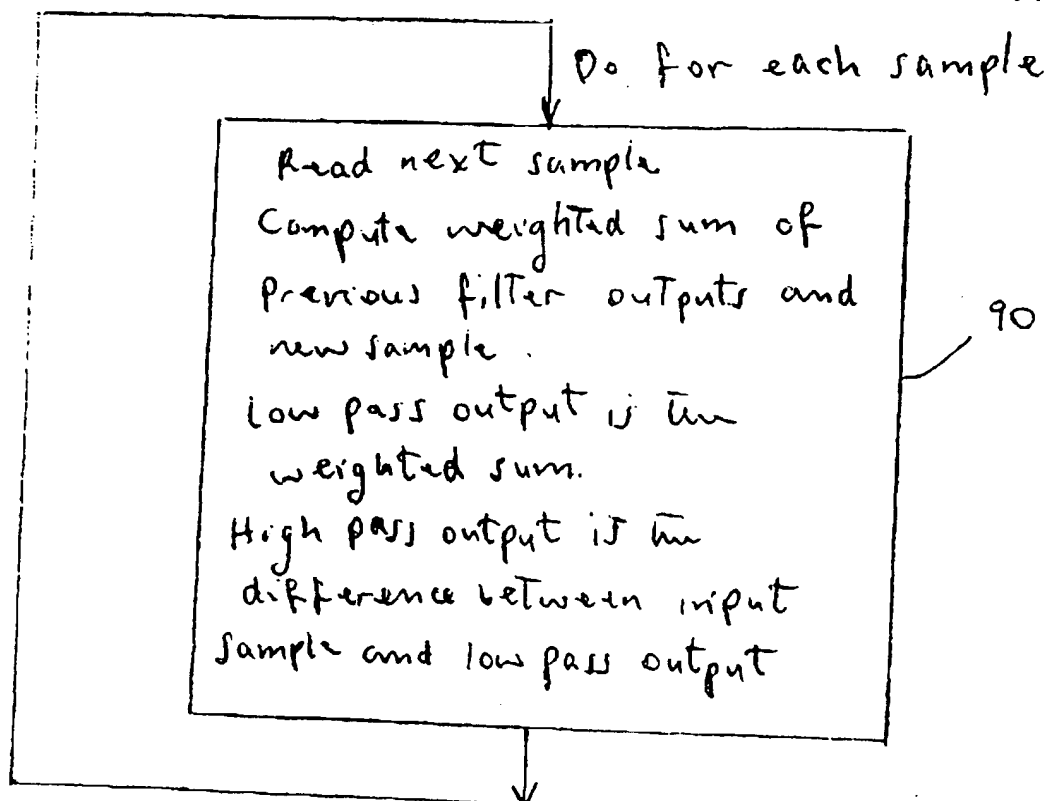 Do for each sample
Read next sample
Compute weighted sum of
previous filter outputs and
new sample.
low pass output is the
weighted sum.
High pass output is the
difference between input
sample and low pass output
90